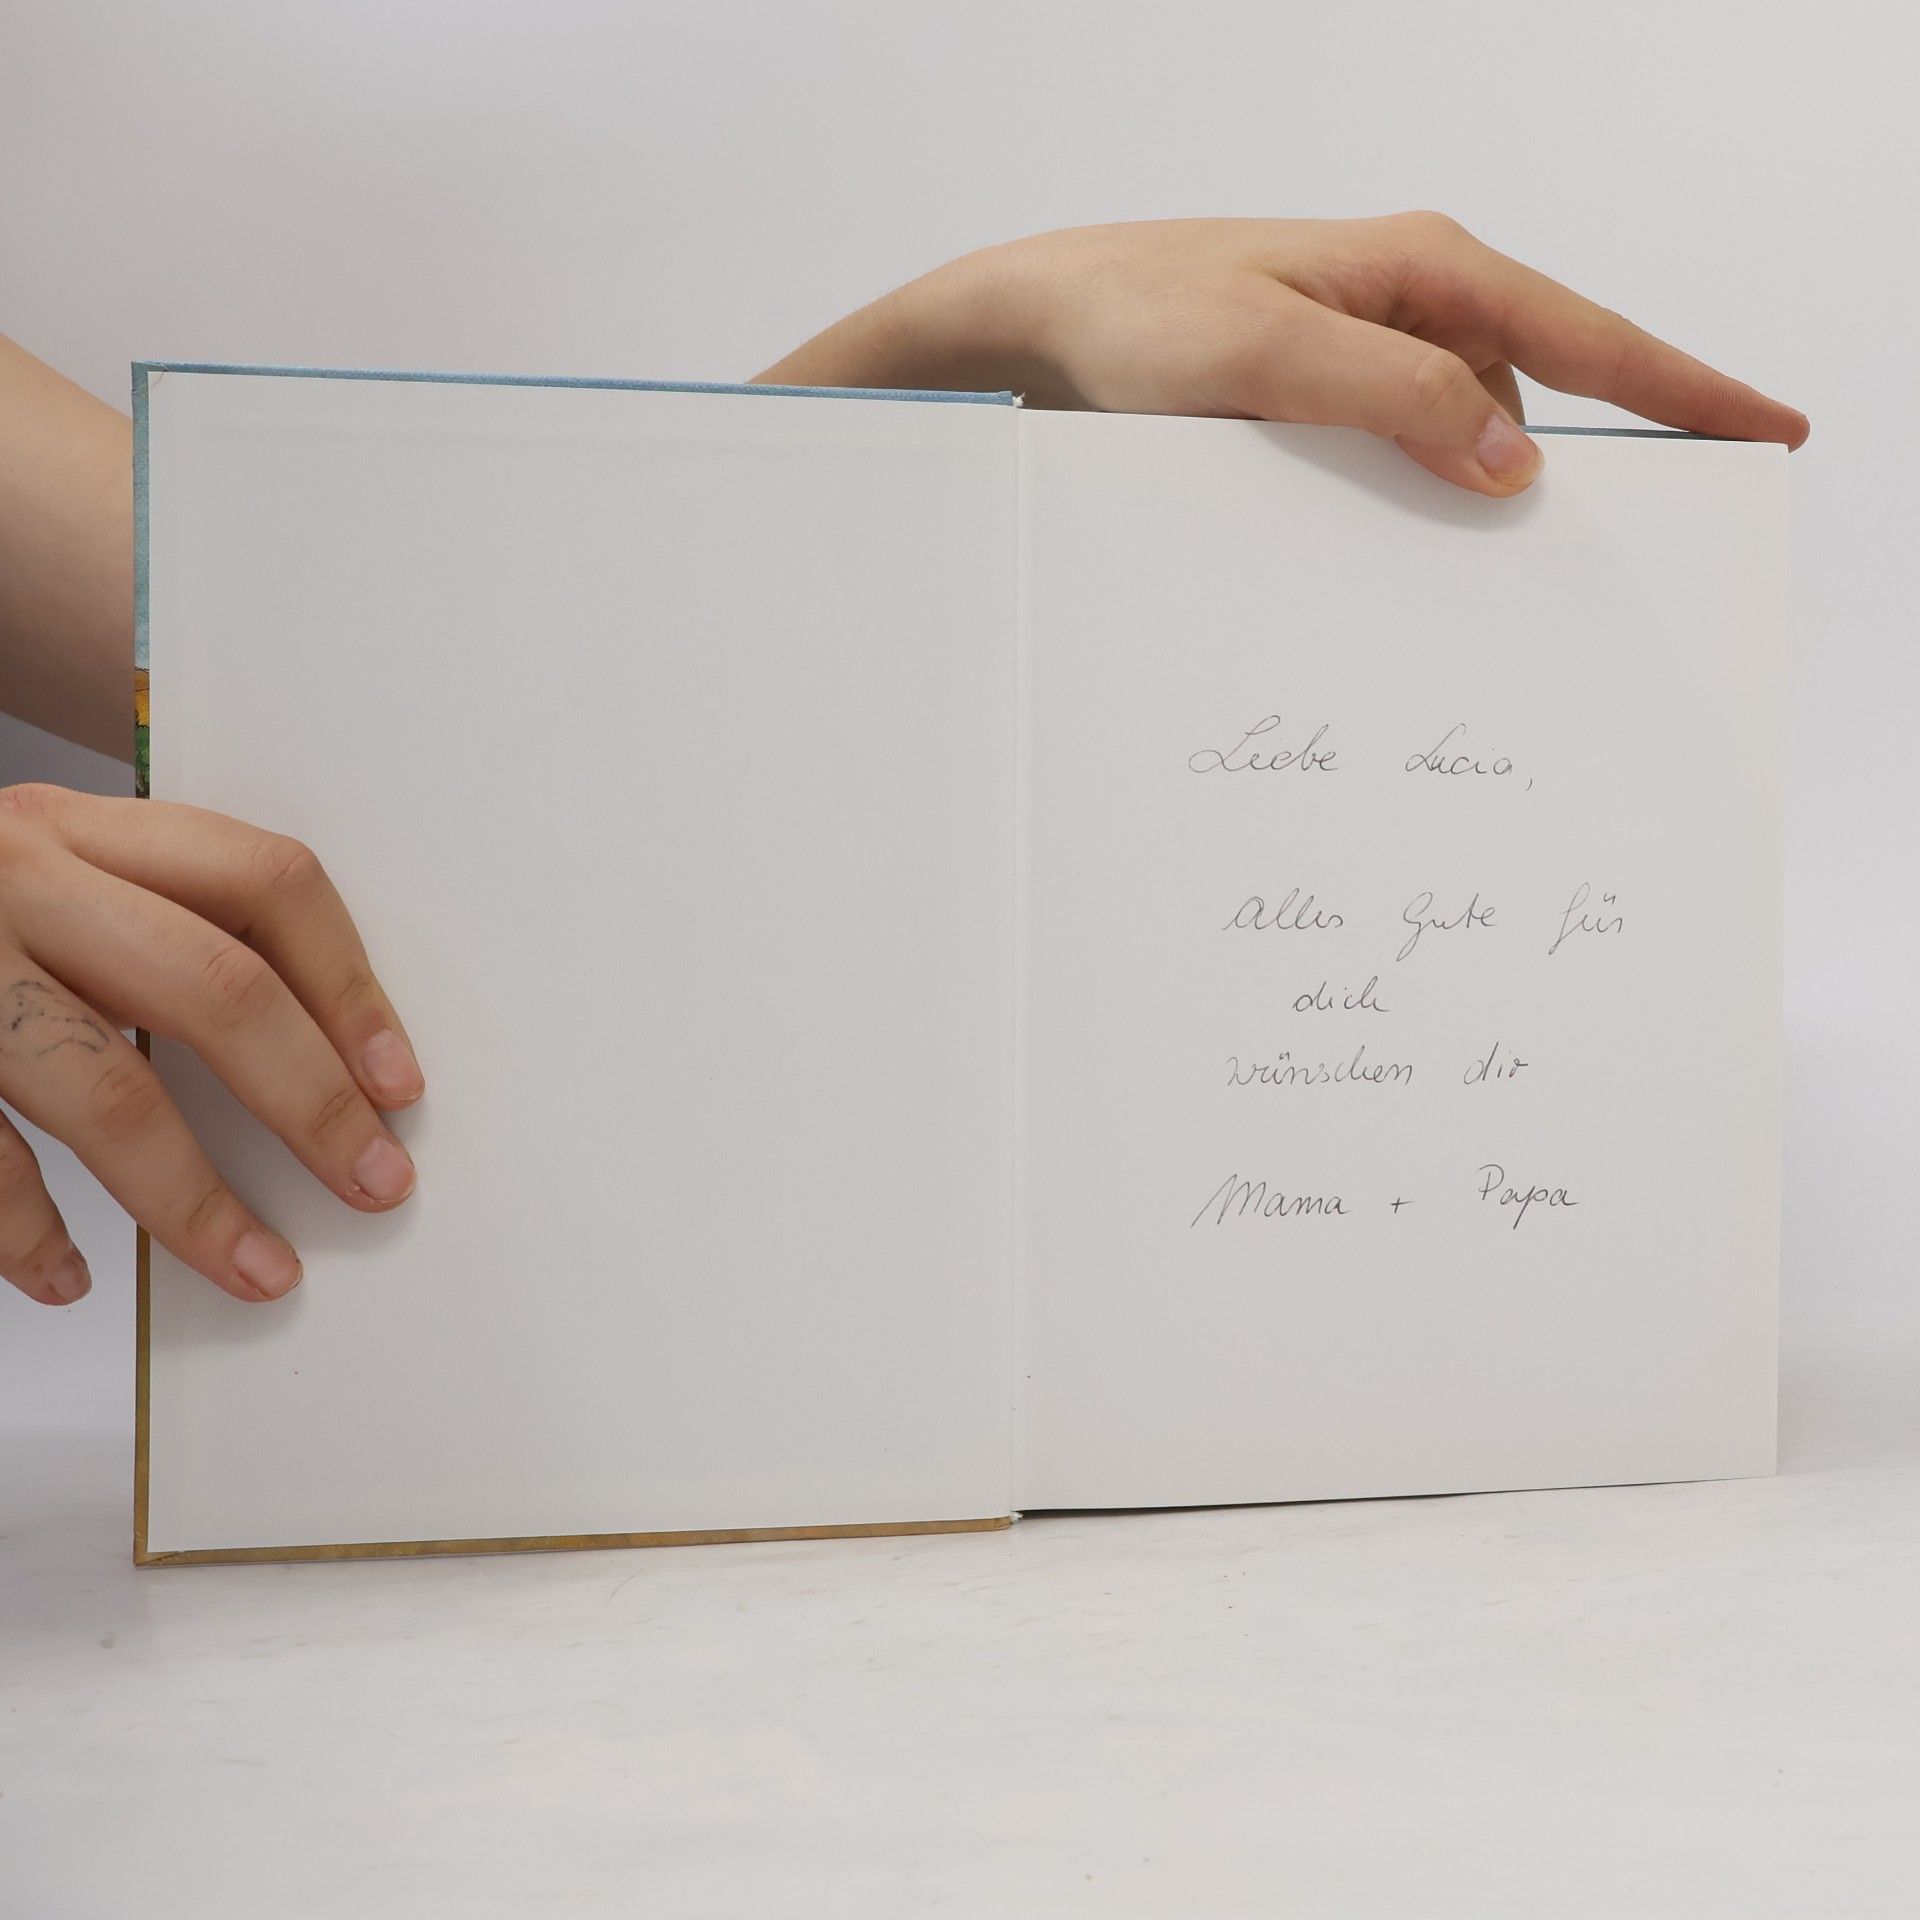 Liebe Lucia,
alles Gute für
dich
wünschen dir
Mama + Papa